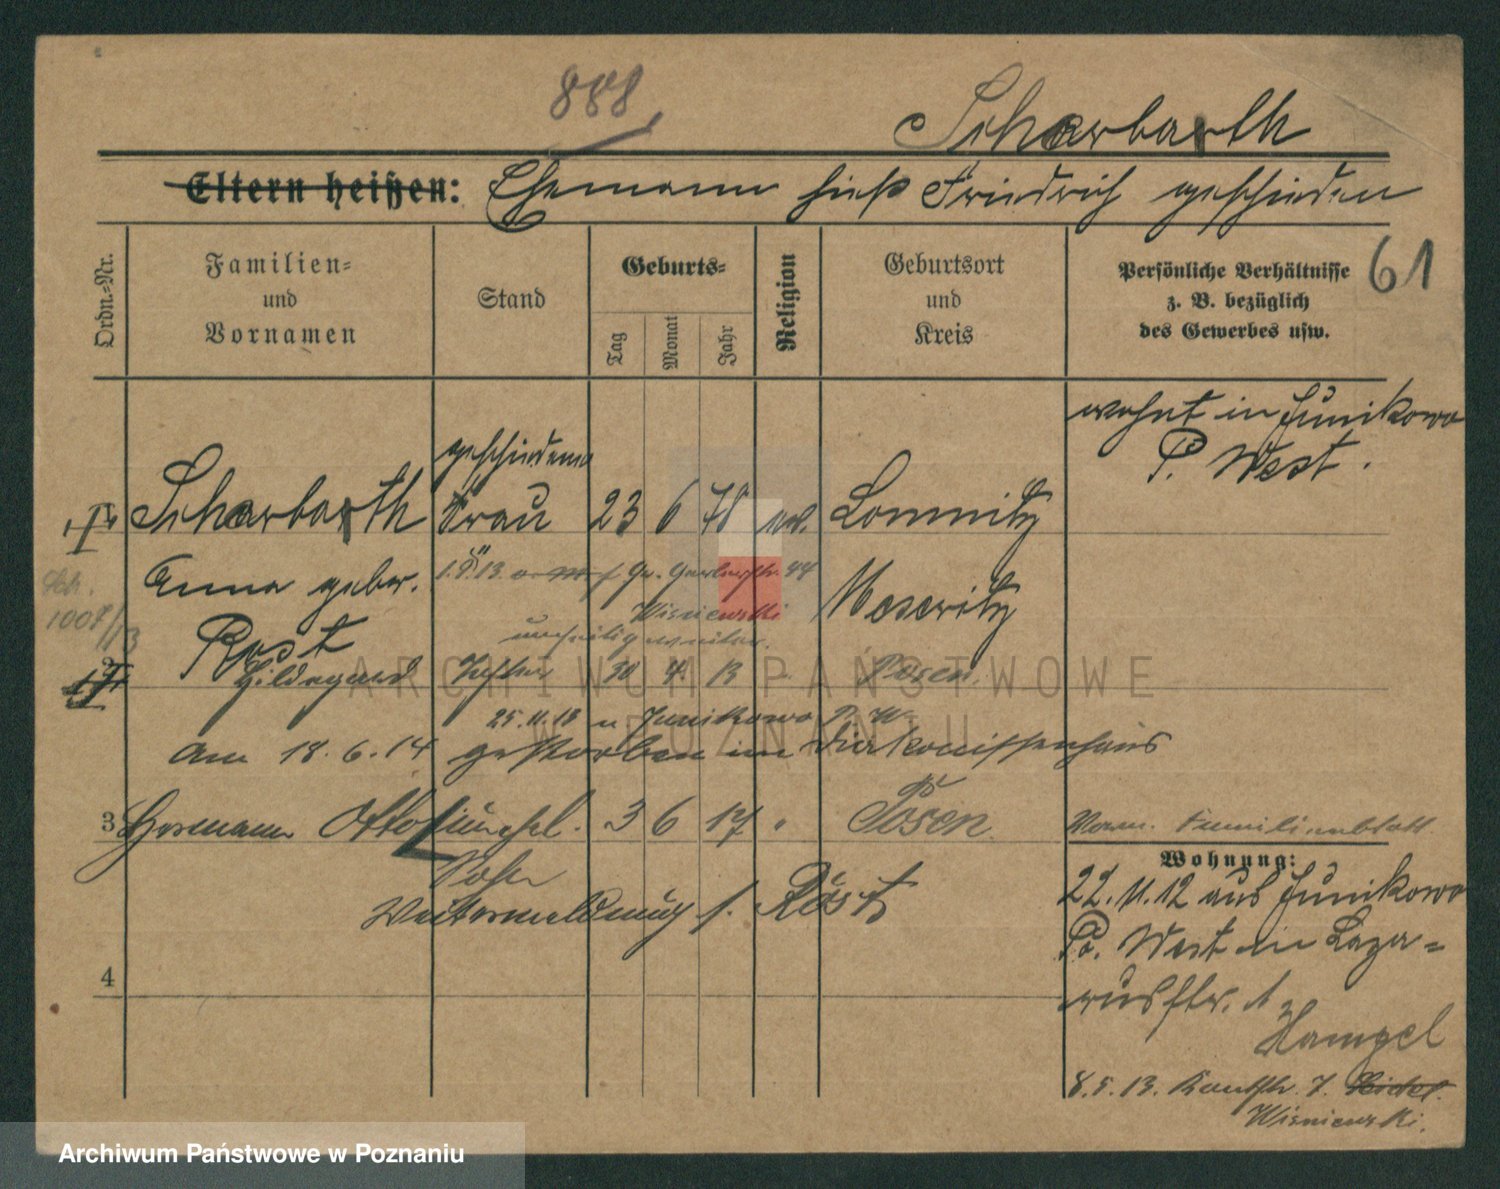 888
Scharbarth
Eltern heißen: Ehemann hieß Friedrich geschieden
61
Ordn.=Nr.
Familien=
und
Vornamen
Stand
Geburts=
Tag
Monat
Jahr
Religion
Geburtsort
und
Kreis
Persönliche Verhältnisse
z. B. bezüglich
des Gewerbes usw.
wohnt in Junikowo
P. West.
geschiedene
Scharbarth Frau 23 6 78 ev. Lomnitz
Anna gebor. 1.8.13 Gr. Gerberstr. 44 Meseritz
Wisniewski
1007/13
Rost
2 Hildegard Tochter 30 4. 13 Posen.
25.11.13 n Junikowo P. W.
am 18.6.14 gestorben im Diakonissenhaus
3 Hermann Otto 3 6 17 " Posen.
Sohn
Familienblatt
Wohnung:
Weitermeldung s. Rost
22.11.12 aus Junikowo
Po. West in Laza=
russtr. 1
Hampel
4
8.5.13. Kantstr. 7.
Wisniewski.
ARCHIWUM PAŃSTWOWE
W POZNANIU
Archiwum Państwowe w Poznaniu